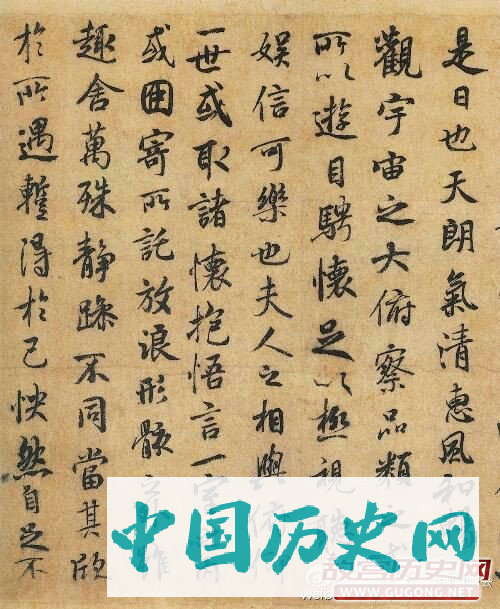 是日也天朗氣清惠風和
觀宇宙之大俯察品類
所以遊目騁懷足以極視
娛信可樂也夫人之相與俯仰
一世或取諸懷抱悟言一室
或因寄所託放浪形骸
趣舍萬殊靜躁不同當其欣
於所遇暫得於己怏然自足不
中国历史网
故宫历史网
www.GUGONG.net